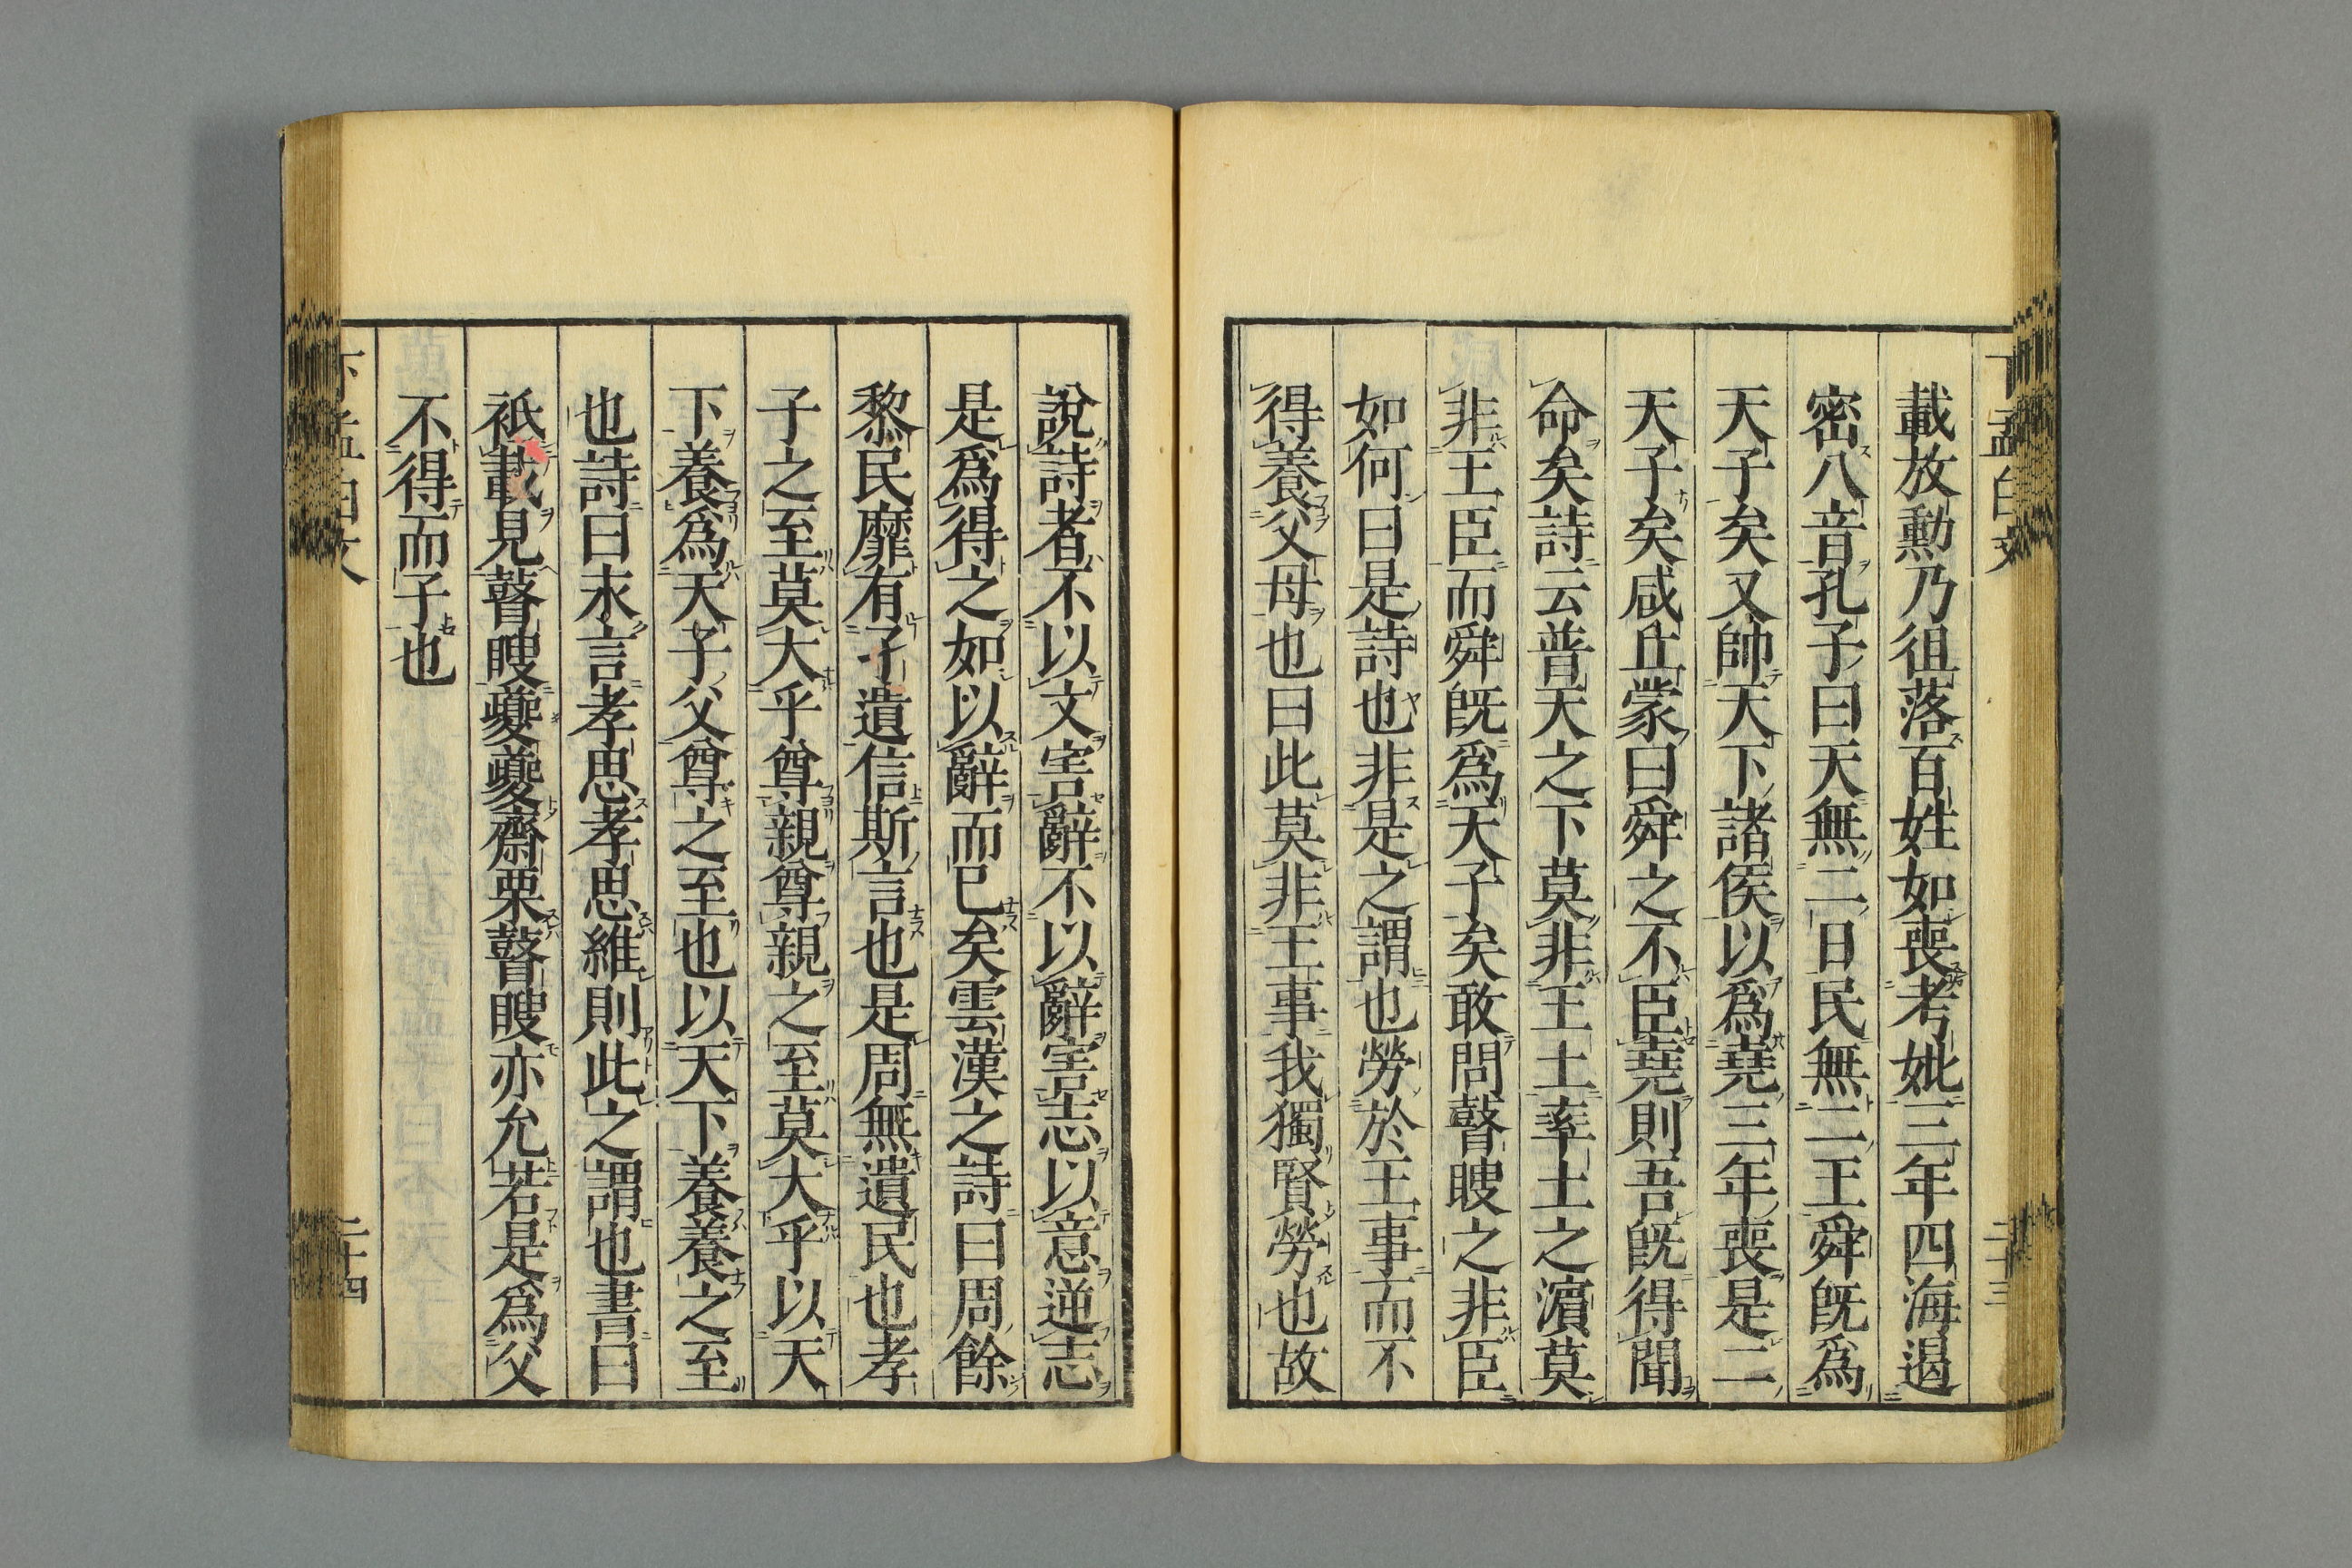 載放勳乃徂落百姓如喪考妣三年四海遏
密八音孔子曰天無二日民無二王舜旣爲
天子矣又帥天下諸侯以爲堯三年喪是二
天子矣咸丘蒙曰舜之不臣堯則吾旣得聞
命矣詩云普天之下莫非王土率土之濱莫
非王臣而舜旣爲天子矣敢問瞽瞍之非臣
如何曰是詩也非是之謂也勞於王事而不
得養父母也曰此莫非王事我獨賢勞也故
說詩者不以文害辭不以辭害志以意逆志
是爲得之如以辭而已矣雲漢之詩曰周餘
黎民靡有孑遺信斯言也是周無遺民也孝
子之至莫大乎尊親尊親之至莫大乎以天
下養爲天子父尊之至也以天下養養之至
也詩曰永言孝思孝思維則此之謂也書曰
祗載見瞽瞍夔夔齋栗瞽瞍亦允若是爲父
不得而子也